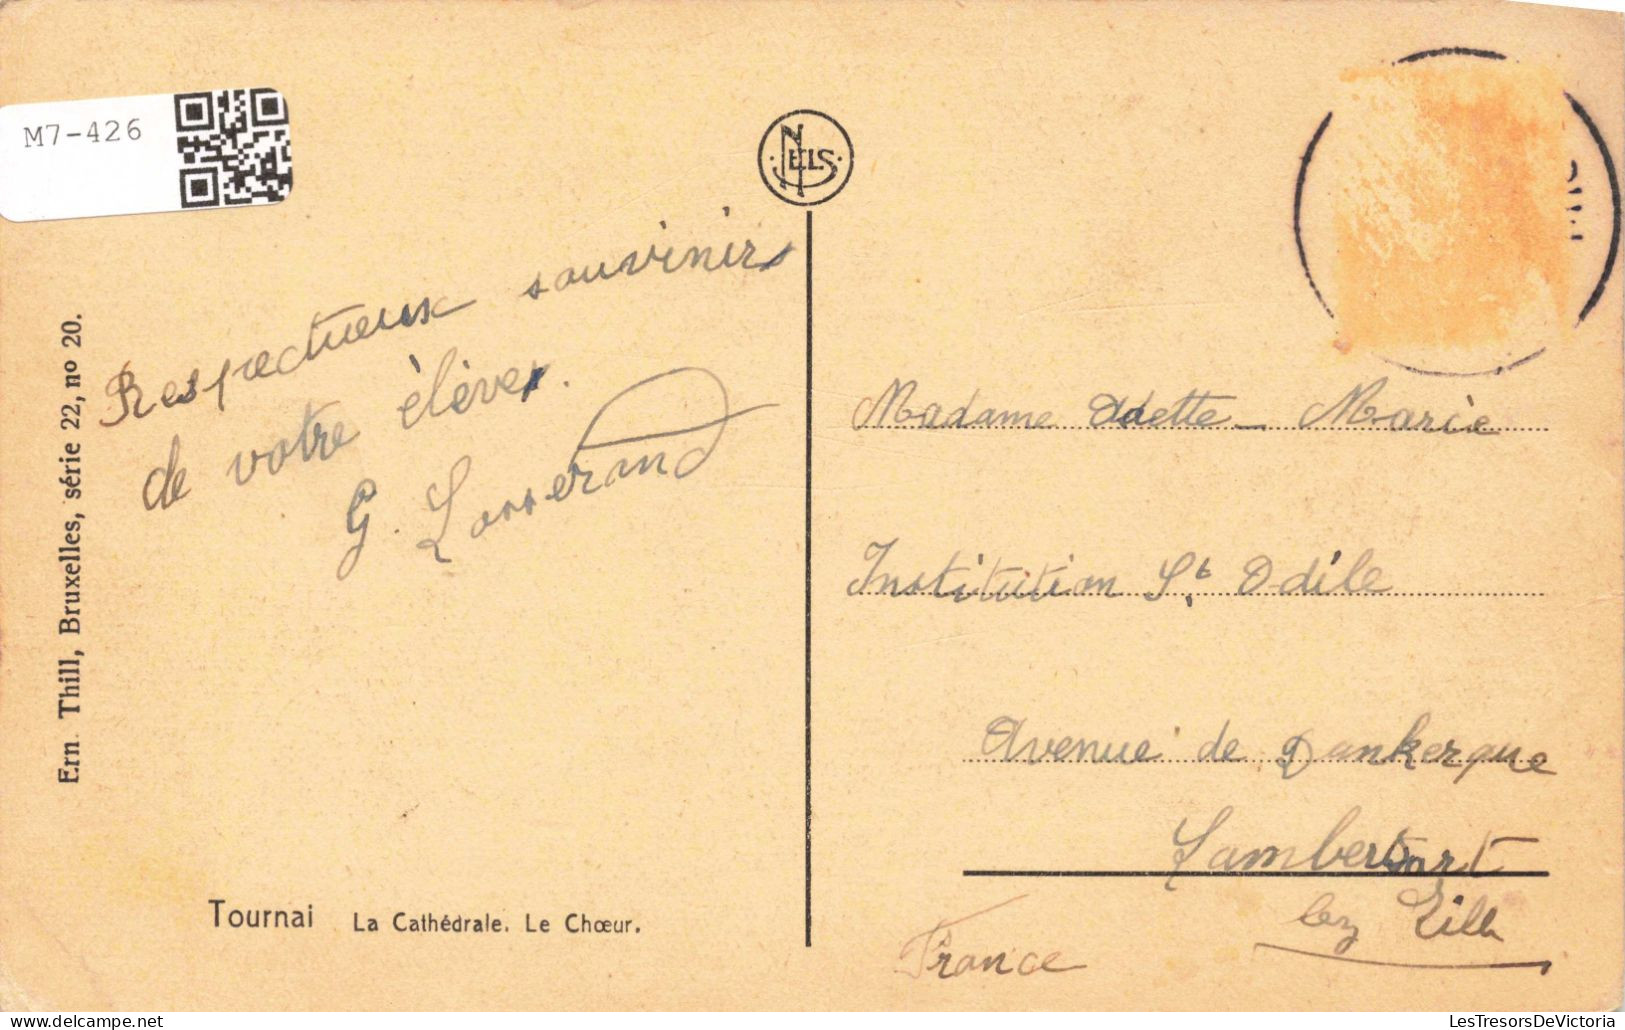 M7-426
NELS
Ern. Thill, Bruxelles, série 22, no 20.
Respectueux souvinirs
de votre élève.
G. Losserand
Tournai La Cathédrale. Le Chœur.
Madame Odette-Marie
Institution St Odile
Avenue de Dunkerque
Lambersart
lez Lille
France
LesTresorsDeVictoria